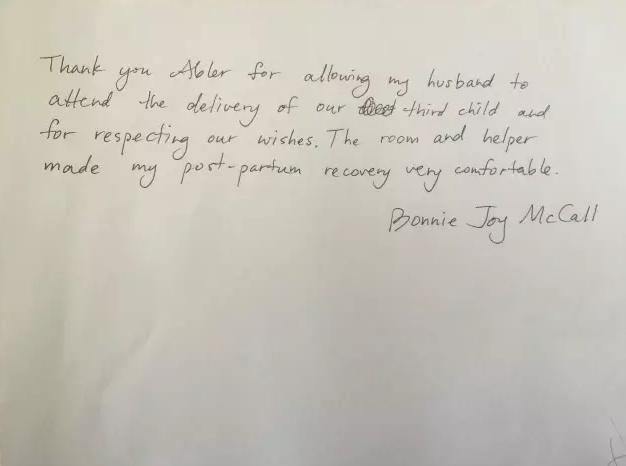 Thank you Abler for allowing my husband to
attend the delivery of our third child and
for respecting our wishes. The room and helper
made my post-partum recovery very comfortable.
Bonnie Joy McCall